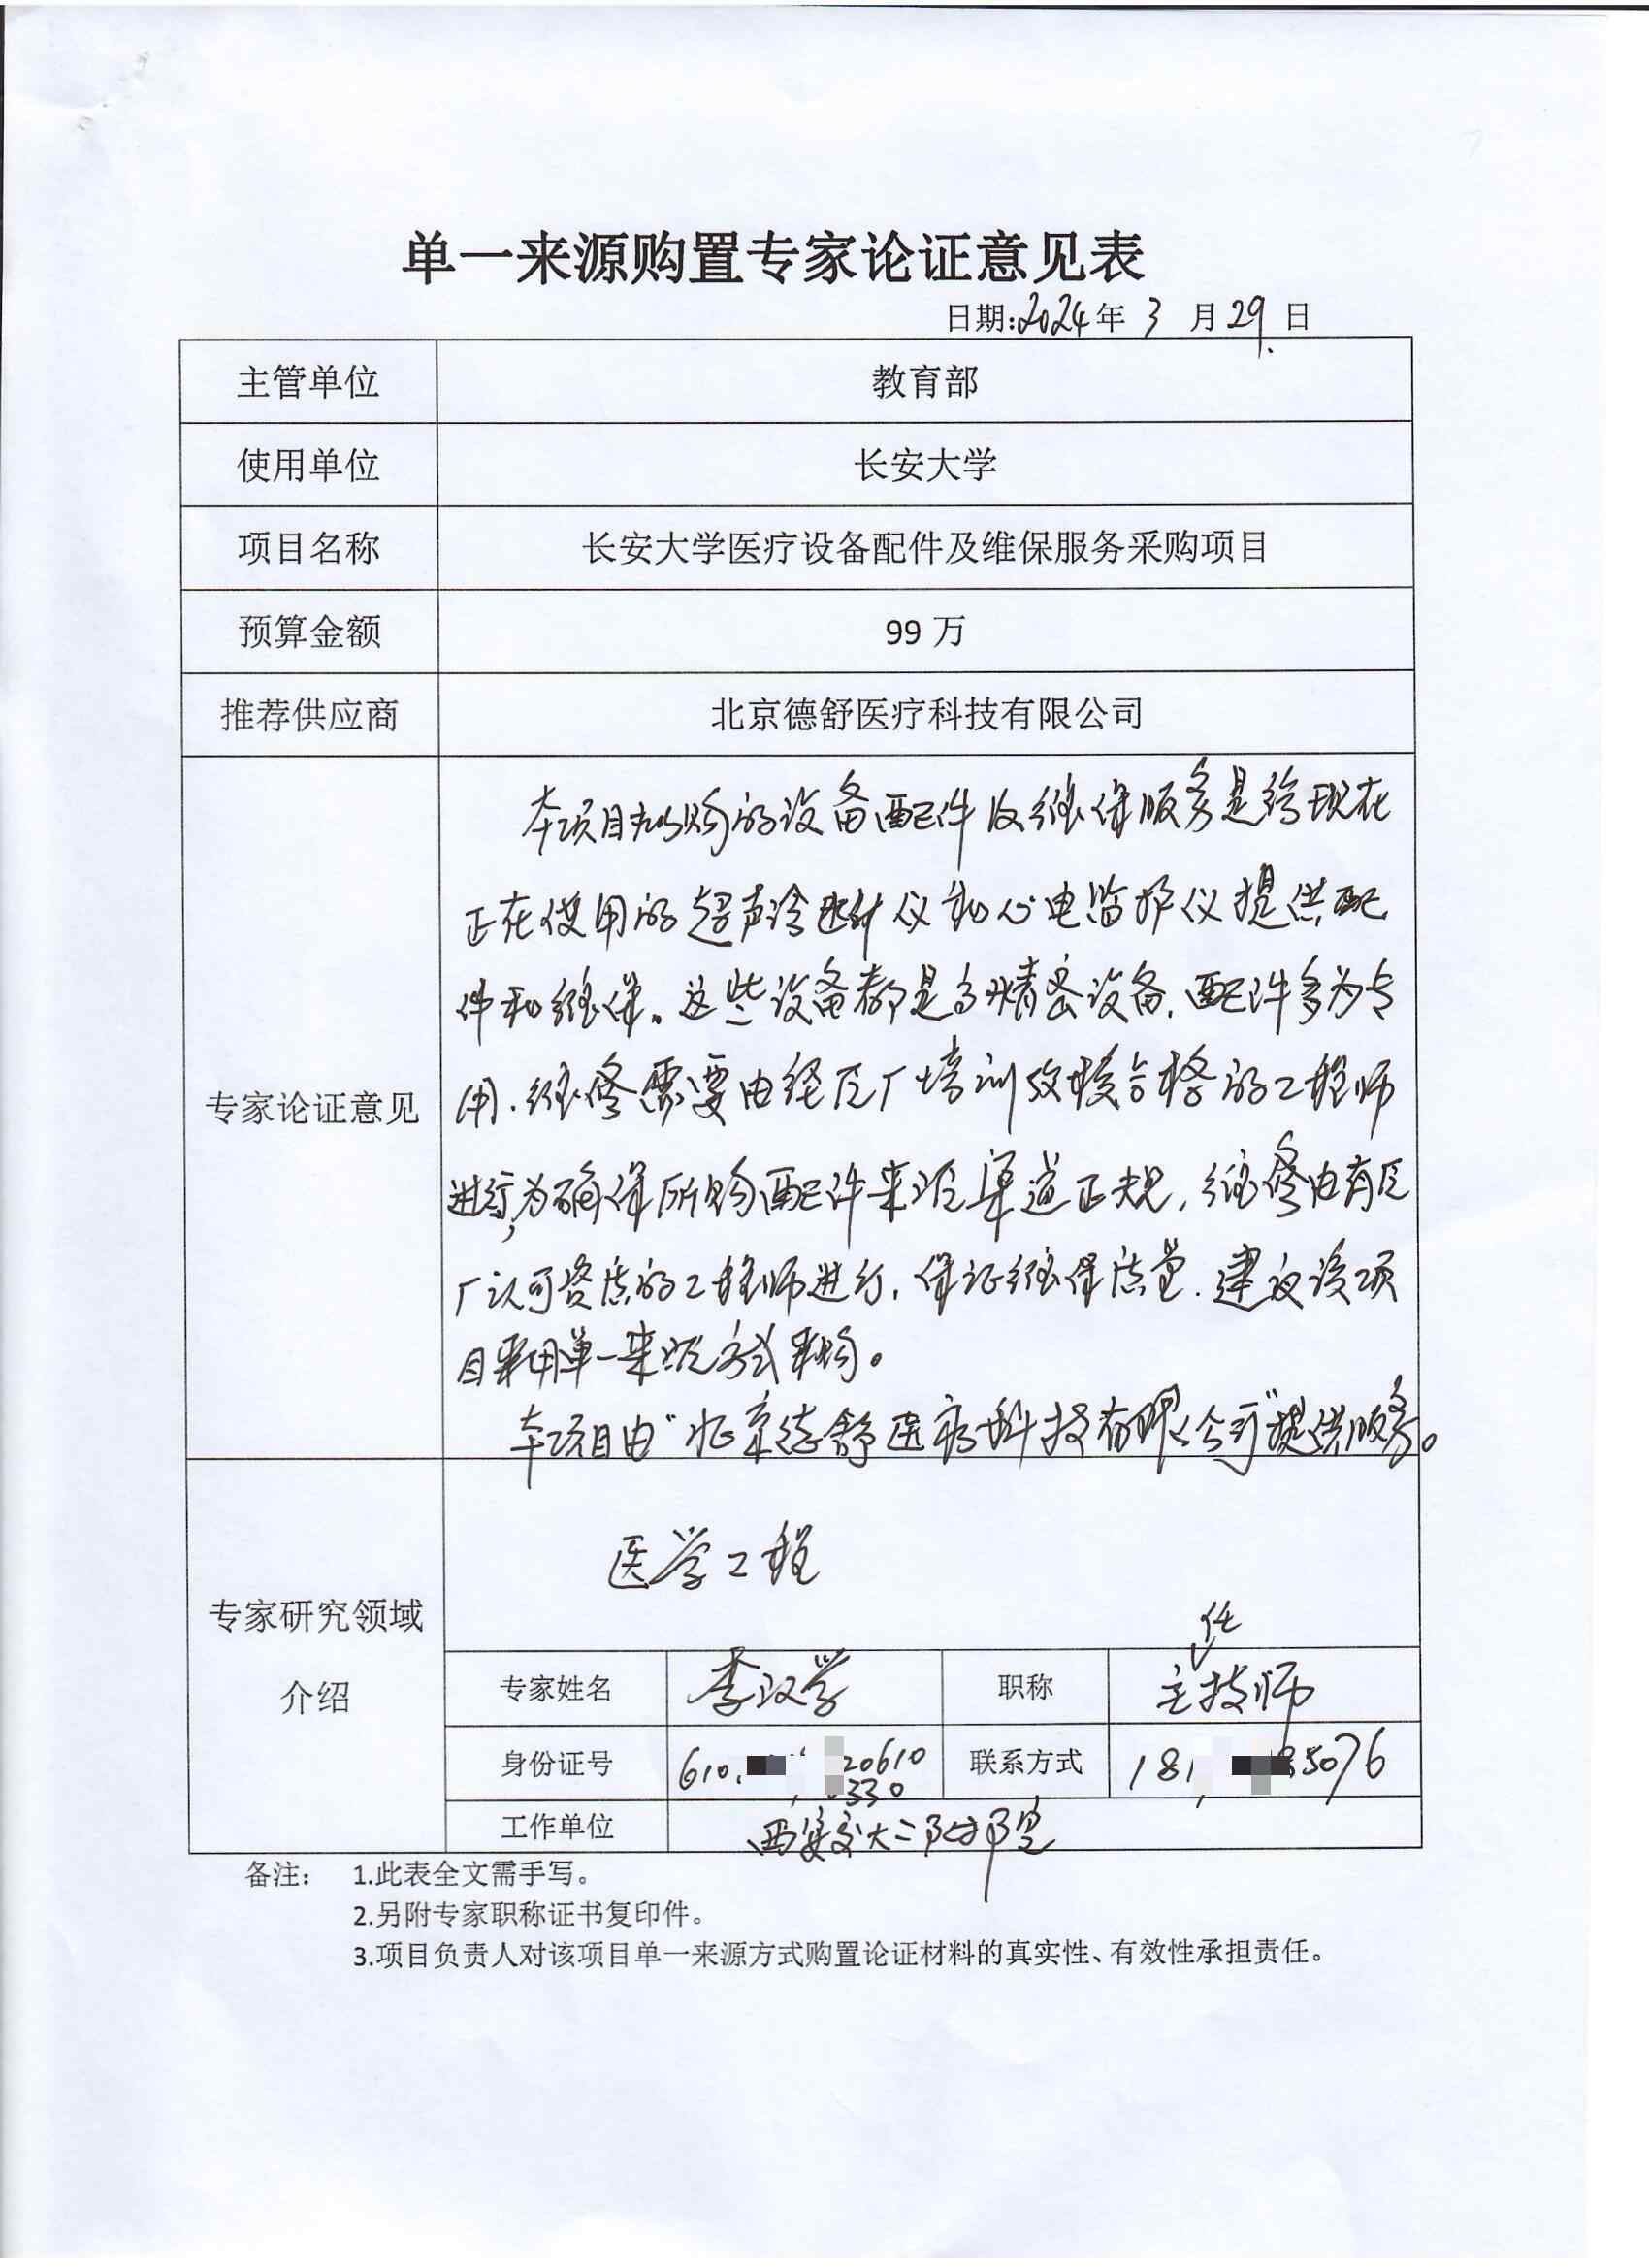 单一来源购置专家论证意见表
日期:2024年 3 月 29 日
主管单位 教育部
使用单位 长安大学
项目名称 长安大学医疗设备配件及维保服务采购项目
预算金额 99 万
推荐供应商 北京德舒医疗科技有限公司
专家论证意见
本项目拟购的设备配件及维保服务是给现在
正在使用的超声诊断仪和心电监护仪提供配
件和维保。这些设备都是高精密设备,配件多为专
用,维修需要由经原厂培训考核合格的工程师
进行,为确保所购配件来源渠道正规,维修由有原
厂认可资质的工程师进行,保证维保质量,建议该项
目采用单一来源方式采购。
本项目由"北京德舒医疗科技有限公司"提供服务。
专家研究领域
介绍
医学工程
专家姓名 李汉学 职称 主任技师
身份证号 610 20610
330 联系方式 181 85076
工作单位 西安交大二附院
备注: 1.此表全文需手写。
2.另附专家职称证书复印件。
3.项目负责人对该项目单一来源方式购置论证材料的真实性、有效性承担责任。